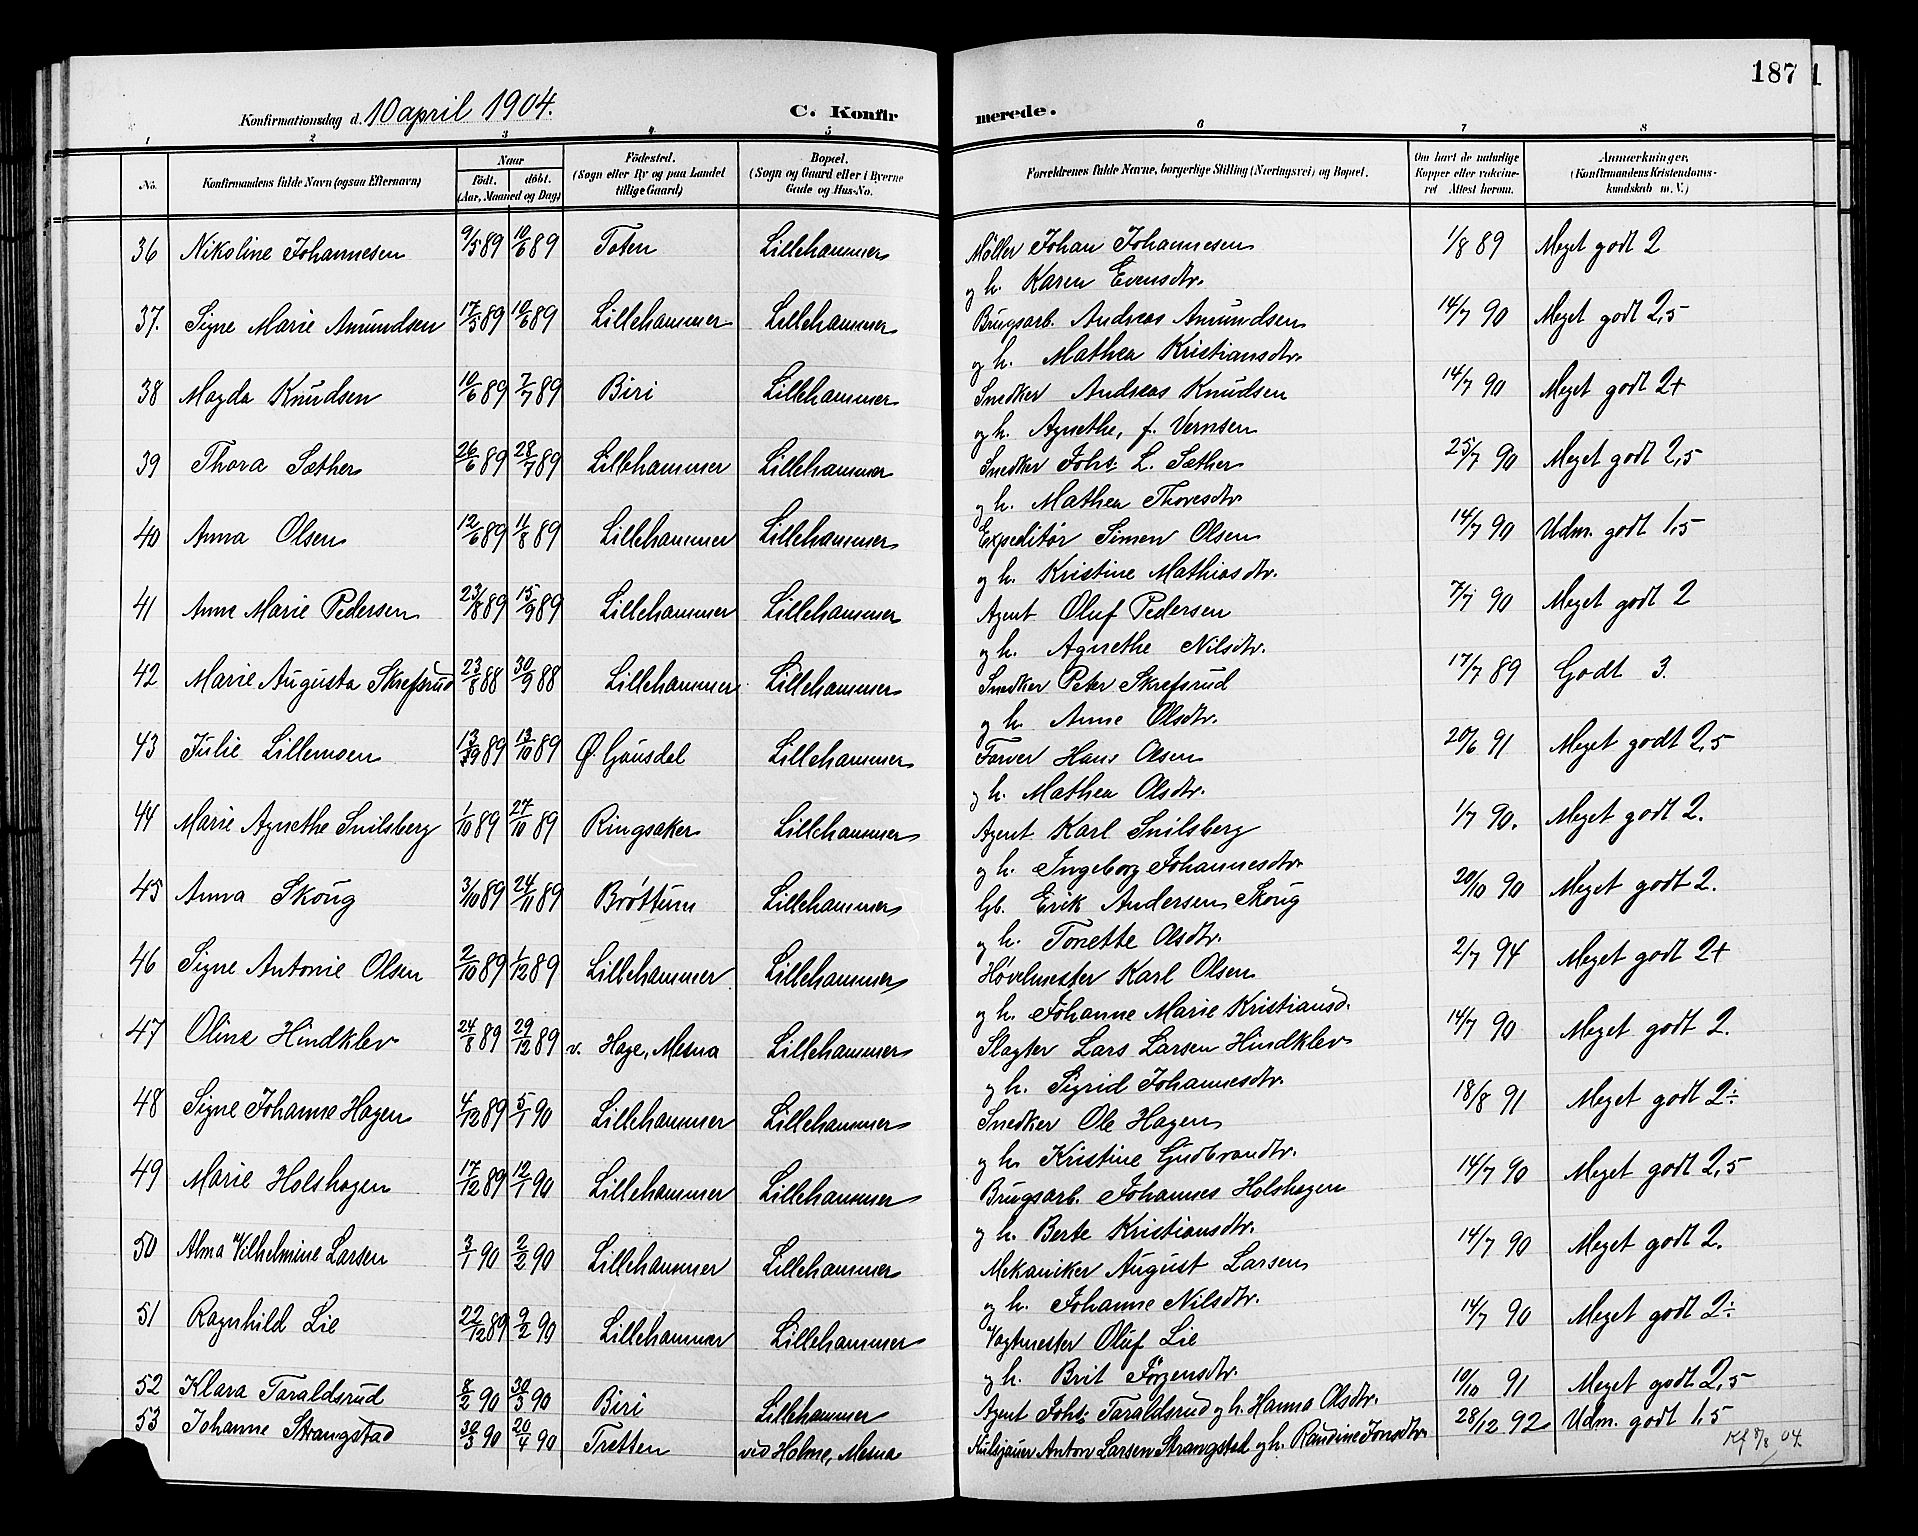 187
Konfirmationsdag d. 10 april 1904. C. Konfirmerede.
1 2 3 4 5 6 7 8
No. Konfirmandens fulde Navn (ogsaa Efternavn) Naar Födt. döbt. (Aar, Maaned og Dag) Födested. (Sogn eller By og paa Landet tillige Gaard) Bopæl. (Sogn og Gaard eller i Byerne Gade og Hus-No. Forældrenes fulde Navne, borgerlige Stilling (Næringsvei) og Bopæl. Om havt de naturlige Kopper eller vakcineret Attest herom. Anmærkninger. (Konfirmandens Kristendomskundskab m. V.)
36 Nikoline Johannesen 9/5 89 10/6 89 Toten Lillehammer Møller Johan Johannesen 1/8 89 Meget godt 2
og h. Karen Evensdtr.
37. Signe Marie Amundsen 17/5 89 10/6 89 Lillehammer Lillehammer Brugsarb. Andreas Amundsen 14/7 90 Meget godt 2,5
og h. Mathea Kristiansdtr.
38 Magda Knudsen 10/6 89 7/7 89 Biri Lillehammer Snedker Andreas Knudsen 14/7 90 Meget godt 2+
og h. Agnethe, f. Vernsen
39 Thora Sæther 26/6 89 28/7 89 Lillehammer Lillehammer Snedker Johs. L. Sæther 25/7 90 Meget godt 2,5
og h. Mathea Thoresdtr.
40 Anna Olsen 12/6 89 11/8 89 Lillehammer Lillehammer Expeditør Simen Olsen 14/7 90 Udm. godt 1,5
og h. Kristine Mathiasdtr.
41 Anna Marie Pedersen 23/8 89 15/9 89 Lillehammer Lillehammer Agent Oluf Pedersen 7/7 90 Meget godt 2
og h. Agnethe Nilsdtr.
42 Marie Augusta Skrefsrud 23/8 88 30/9 88 Lillehammer Lillehammer Snedker Peter Skrefsrud 17/7 89 Godt 3.
og h. Anne Olsdtr.
43 Julie Lillemoen 13/9 89 13/10 89 Ø Gausdal Lillehammer Farver Hans Olsen 20/6 91 Meget godt 2,5
og h. Mathea Olsdtr.
44 Marie Agnethe Snilsberg 1/10 89 27/10 89 Ringsaker Lillehammer Agent Karl Snilsberg 1/7 90. Meget godt 2.
og h. Ingeborg Johannesdtr.
45 Anna Skoug 3/10 89 24/11 89 Brøttum Lillehammer Gb. Erik Andersen Skoug 20/10 90 Meget godt 2.
og h. Tonette Olsdtr.
46 Signe Antonie Olsen 2/10 89 1/12 89 Lillehammer Lillehammer Høvelmester Karl Olsen 2/7 94 Meget godt 2+
og h. Johanne Marie Kristiansd.
47 Oline Hindklev 24/8 89 29/12 89 v. Hage, Mesna Lillehammer Slagter Lars Larsen Hindklev 14/7 90 Meget godt 2.
og h. Sigrid Johannesdtr.
48 Signe Johanne Hagen 4/12 89 5/1 90 Lillehammer Lillehammer Snedker Ole Hagen 18/8 91 Meget godt 2÷
og h. Kristine Gudbrandtr.
49 Marie Holshagen 17/12 89 12/1 90 Lillehammer Lillehammer Brugsarb. Johannes Holshagen 14/7 90 Meget godt 2,5
og h. Berte Kristiansdtr.
50 Alma Vilhelmine Larsen 3/1 90 2/2 90 Lillehammer Lillehammer Mekaniker August Larsen 14/7 90 Meget godt 2.
og h. Johanne Nilsdtr.
51 Ragnhild Lie 22/12 89 9/2 90 Lillehammer Lillehammer Vagtmester Oluf Lie 14/7 90 Meget godt 2÷
og h. Brit Jørgensdtr.
52 Klara Taraldsrud 8/2 90 30/3 90 Biri Lillehammer Agent Johs. Taraldsrud og h. Hanna Olsdtr. 10/10 91 Meget godt 2,5
53 Johanne Strangstad 30/3 90 20/4 90 Tretten ved Holme, Mesna Anton Larsen Strangstad og h. Randine Jonsdtr. 28/12 92 Udm. godt 1,5